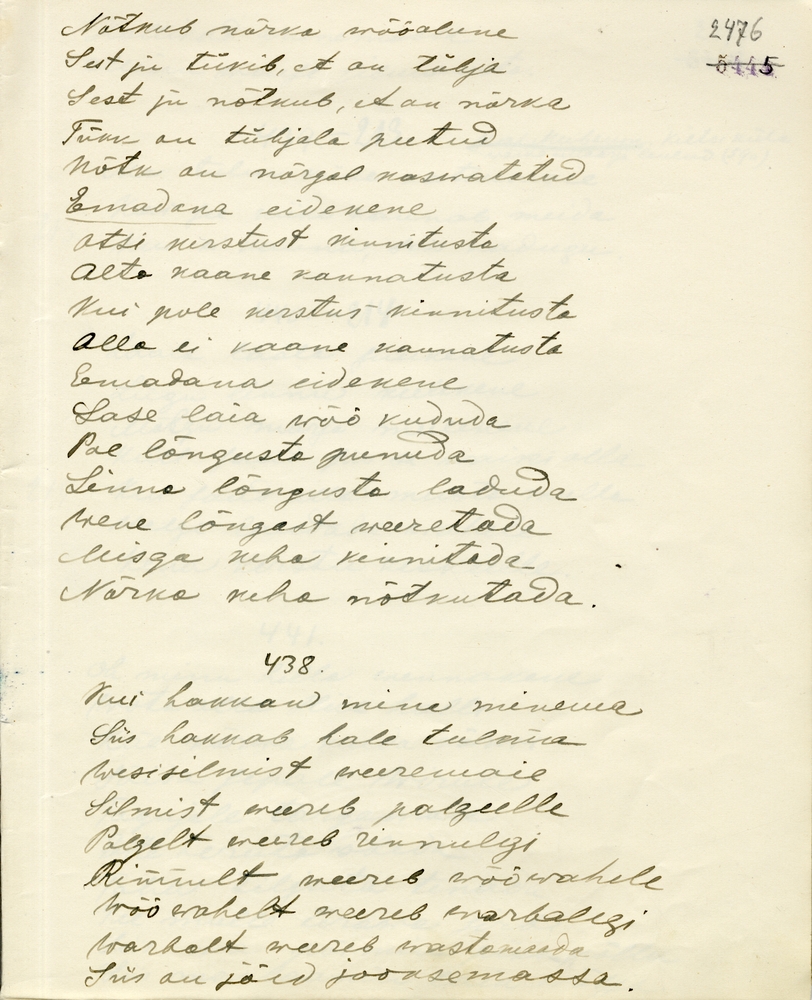 2476
Õ 445
Nõtkub nõrka wööalune
Sest ju tükib, et on tühja
Sest ju nõtkub, et on nõrka
Tükk on tühjala peetud
Nõtk on nõrgal kaswatetud
Emadana eidekene
Otsi kerstust kinnitusta
Alta kaane kannatusta
Kui pole kerstus kinnitusta
Alla ei kaane kannatusta
Eemadana eidekene
Lase laia wöö kududa
Pae lõngusta punuda
Linna lõngusta laduda
Wene lõngast weeretada
Misga keha kinnitada
Nõrka keha nõtkutada.
438.
Kui hakkan mina minema
Siis hakkab hale tulema
Wesisilmist weeremaie
Silmist weereb palgeelle
Palgelt weereb rinnulegi
Rinnult weereb wöö wahele
Wöö wahelt weereb warbalegi
Warbalt weereb wastamaada
Siis on jõed jooksemassa.